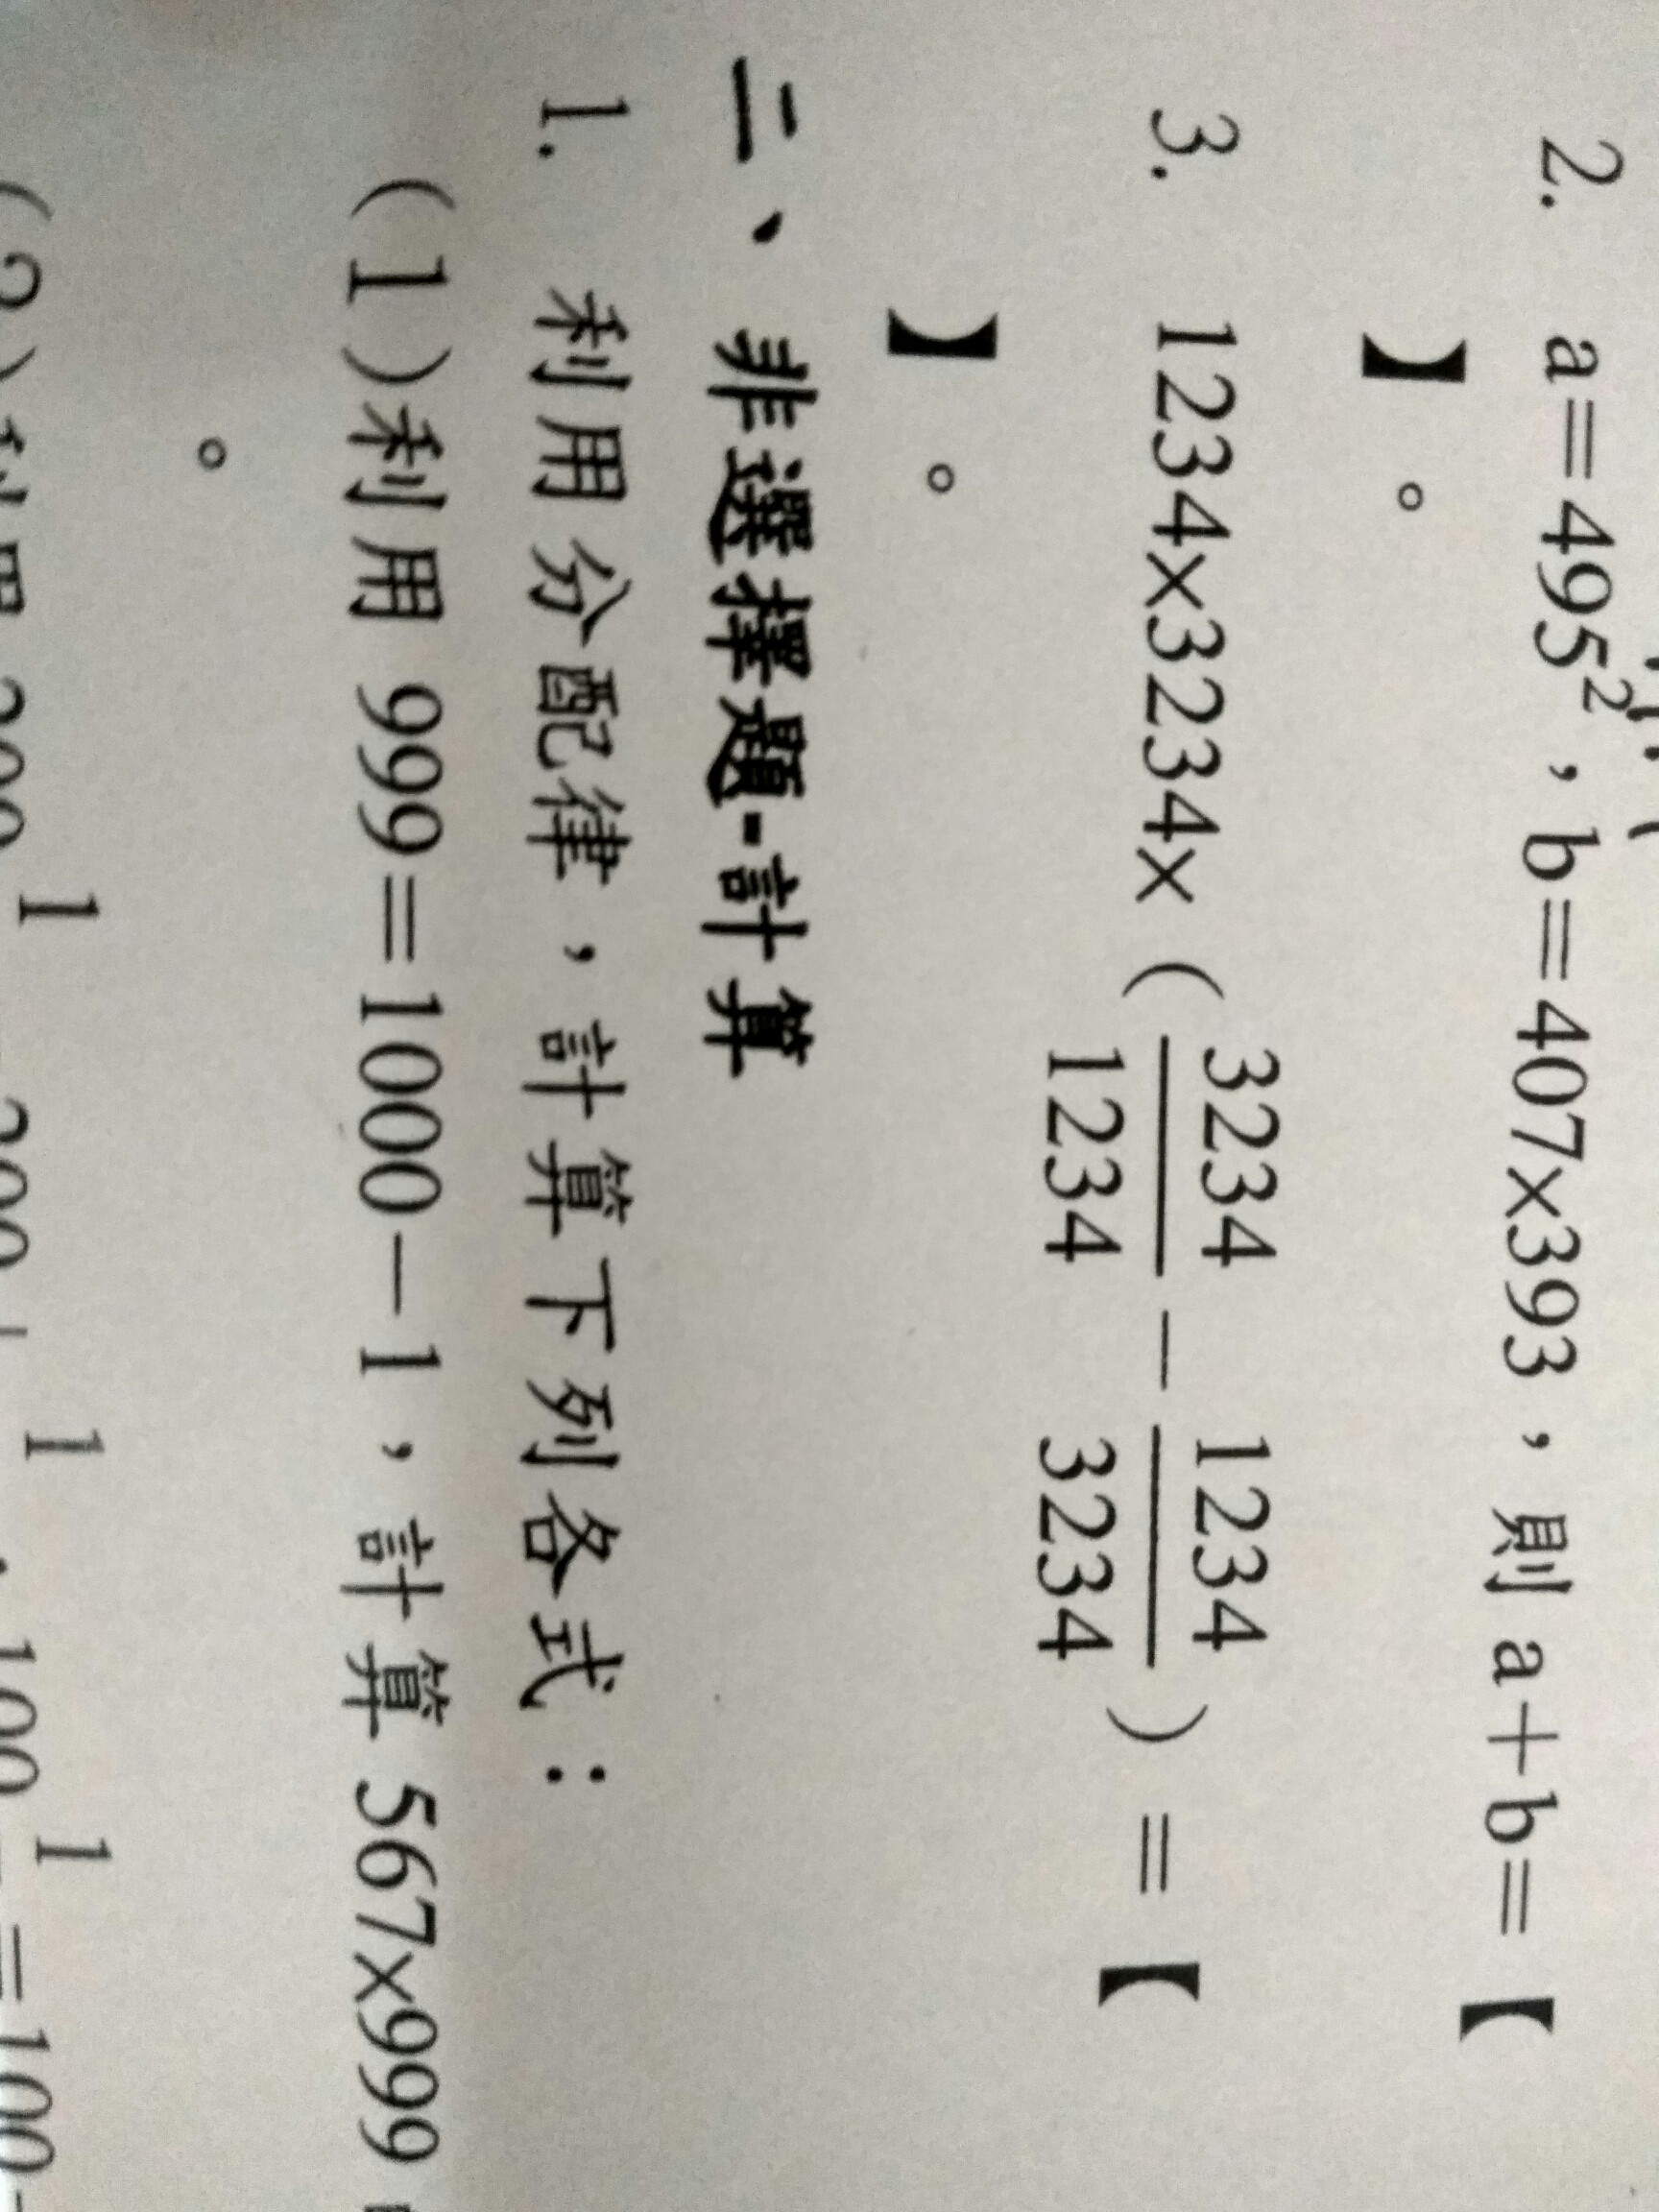 2. a=495²，b=407×393，則 a+b=【
】。
3. 1234×3234×（3234/1234－1234/3234）=【
】。
二、非選擇題-計算
1. 利用分配律，計算下列各式：
(1)利用 999=1000－1，計算 567×999
。